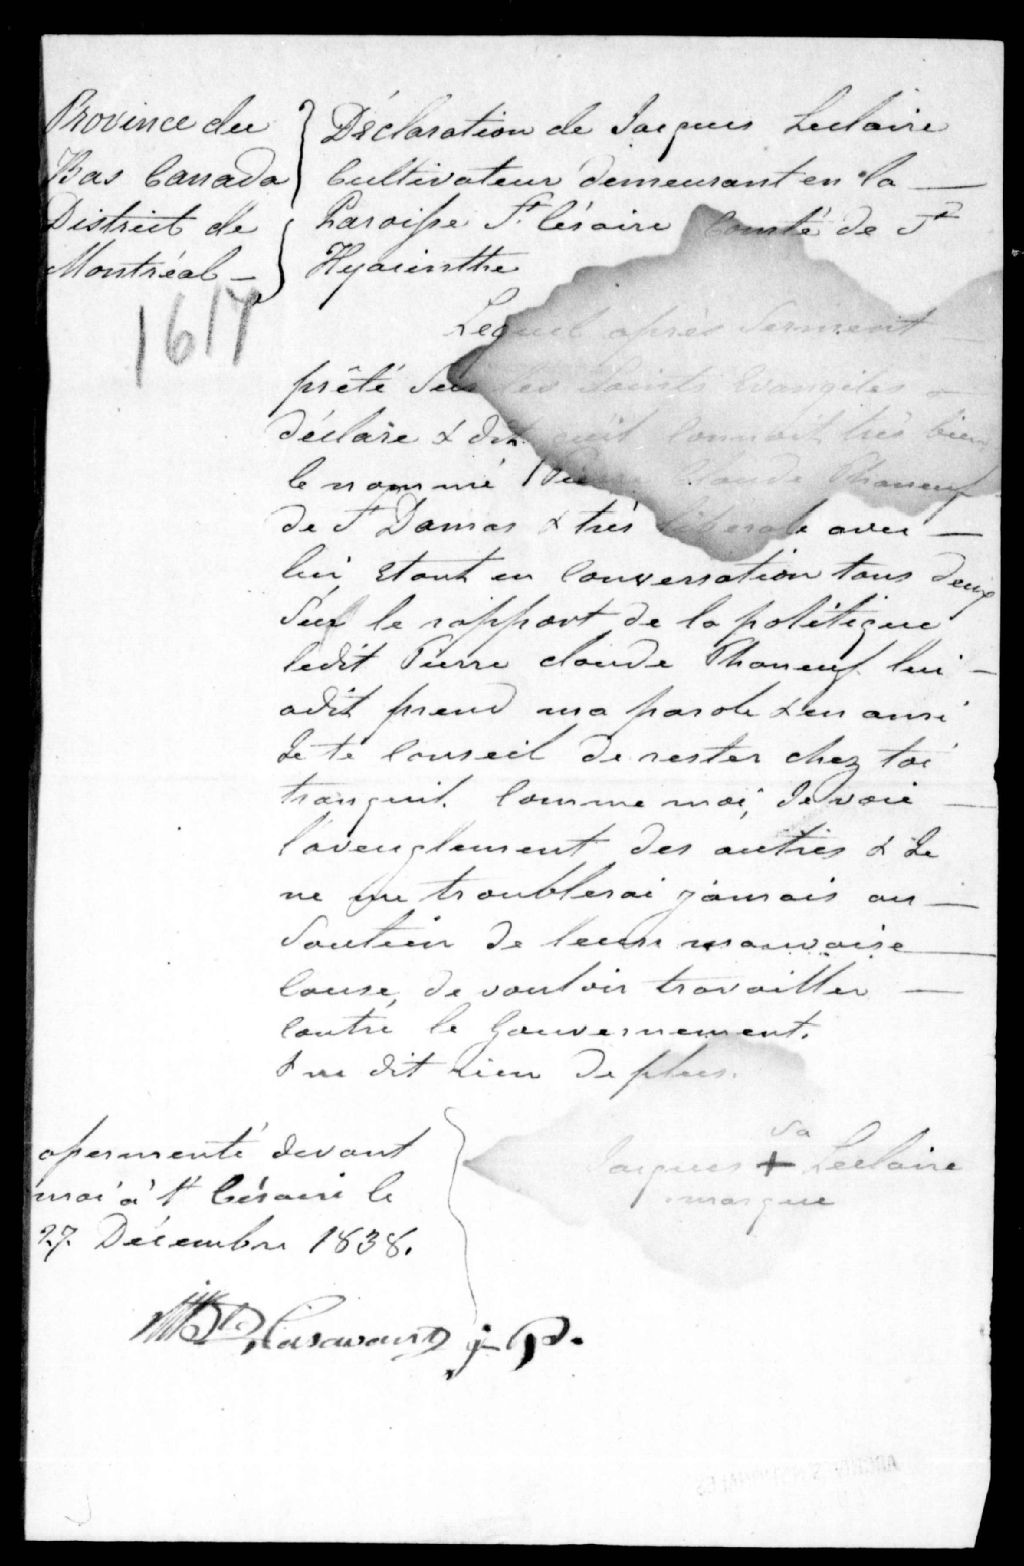 Province du
Bas Canada
District de
Montréal
1617
Déclaration de Jacques Leclaire
Cultivateur demeurant en la
Paroisse St Césaire Comté de St
Hyacinthe
Lequel après Serment
prêté Sur les Saints Evangiles
déclare & dit qu'il Connoit très bien
le nommé Pierre Claude Phaneuf
de St Damas & très liberale avec
lui, Etant en Conversation tous deux
Sur le rapport de la politique
ledit Pierre claude Phaneuf lui
adit prend ma parole & en ami
Je te Conseil de rester chez toi
tranquil. Comme moi, Je voie
l'aveuglement des autres & Je
ne me troublerai jamais au
Soutien de leur mauvaise
Cause, de vouloir travailler
Contre le Gouvernement.
& ne dit rien de plus.
assermenté devant
moi à St Césaire le
27 Décembre 1838.
sa
Jacques + Leclaire
marque
Casavant J P.